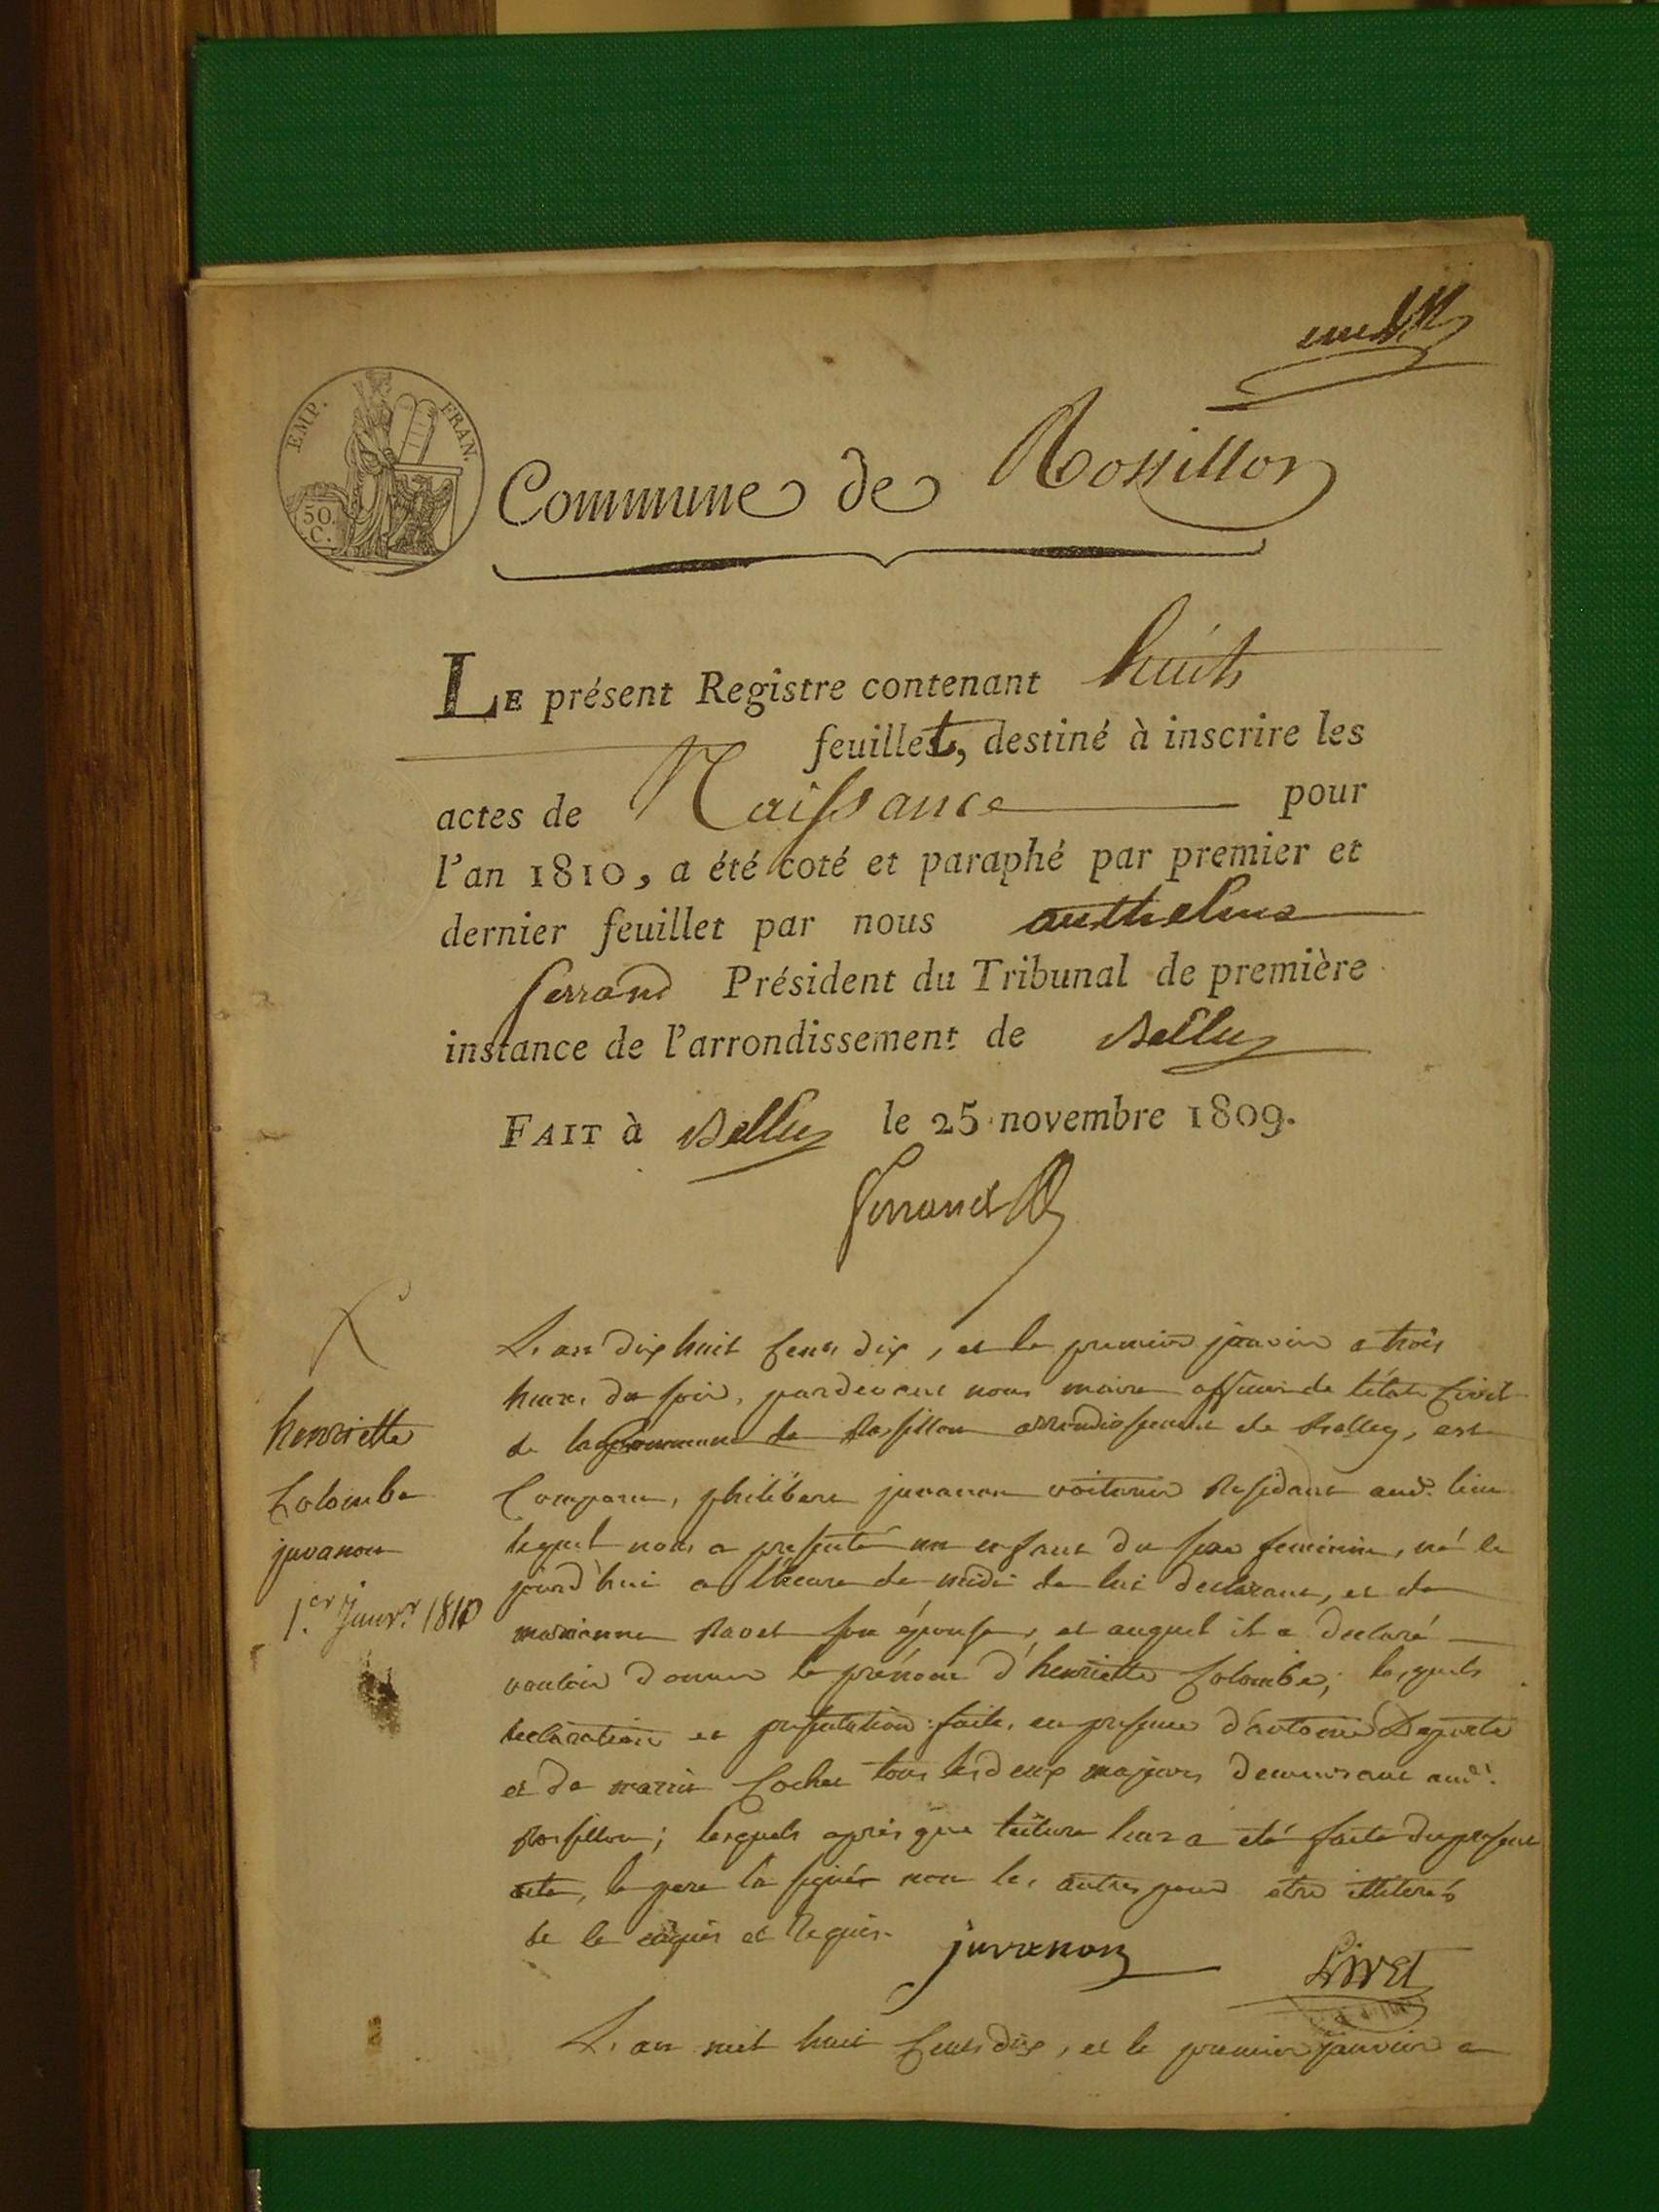 EMP. FRAN.
50.
C.
Commune de Rossillon
LE présent Registre contenant huit
feuillets, destiné à inscrire les
actes de Naissance pour
l'an 1810, a été coté et paraphé par premier et
dernier feuillet par nous anthelme
ferrand Président du Tribunal de première
instance de l'arrondissement de Belley
FAIT à Belley le 25 novembre 1809.
ferrand
henriette
Colombe
juvanon
1.er Janv.r 1810
L'an dix huit Cent dix, et le premier janvier a trois
heures du soir, pardevant nous maire officier de l'état Civil
de la Commune de Rossillon arrondissement de Belley, est
Comparu, philibert juvanon voiturier Residant aud. lieu
lequel nous a presenté un enfant du sexe feminin, né le
jourd'hui a l'heure de midi de lui declarant, et de
marianne Ravet son épouse, et auquel il a declaré
vouloir donner le prénom d'henriette Colombe; lesquels
declaration et presentation faite, en presence d'antoine
et de Cochet tous les deux majeurs demeurant aud.
Rossillon; lesquels après que lecture leur a été faite du present
acte, le pere l'a signé non les autres pour etre illiterés
de le enquis et Requis.
juvanon
LIVET
L'an mil huit Cent dix, et le premier janvier a